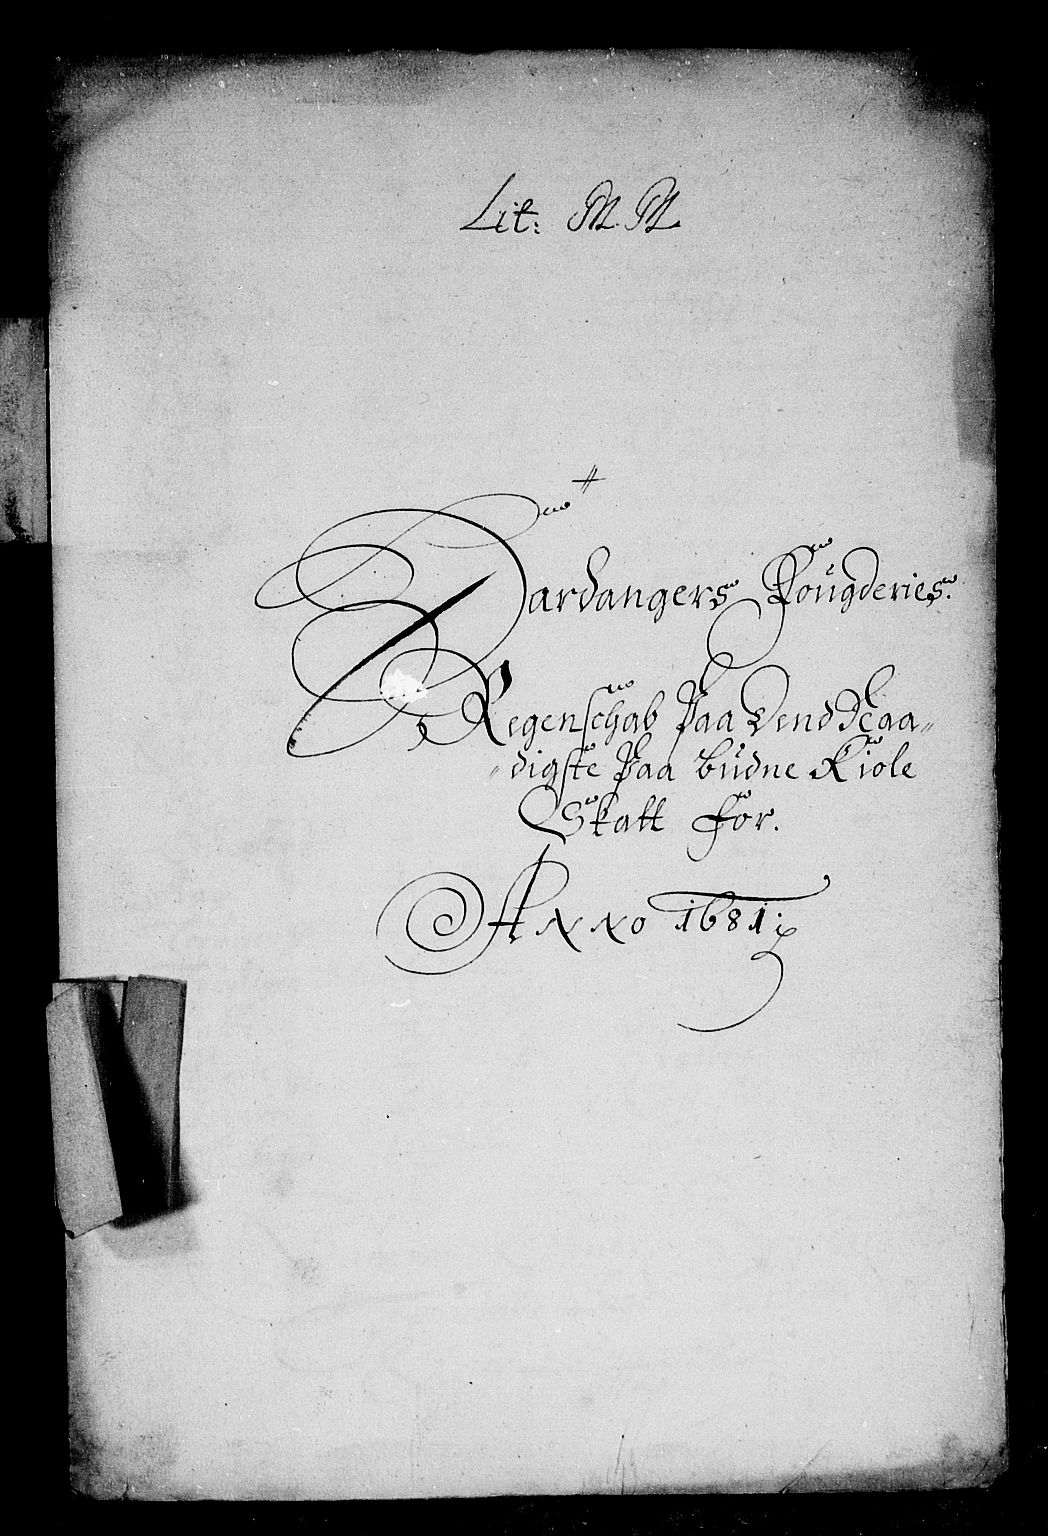 Lit: M. M.
Hardangers Fougderies.
Regenschab Paa Dend Naa„
„digste Paa budne Kiole
Skatt for.
Anno 1681: